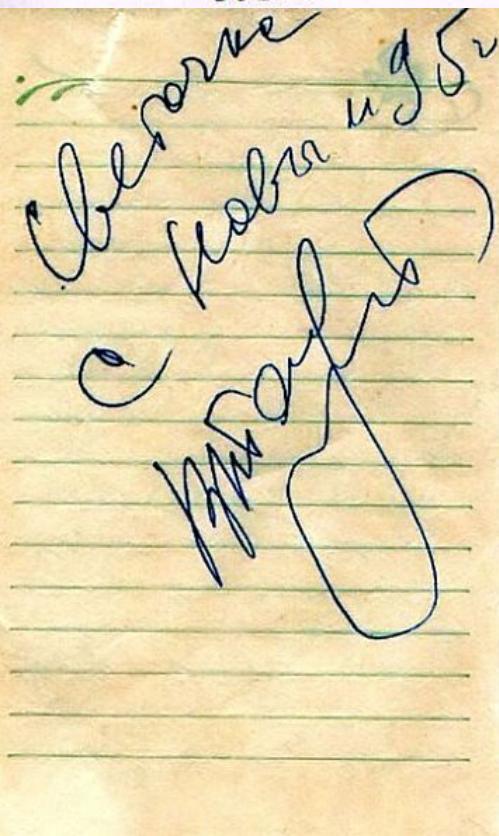 Светочке
С новым 95г